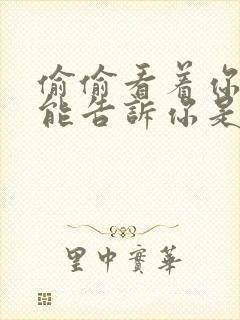 偷偷看着你
能告訴你是
里中實華